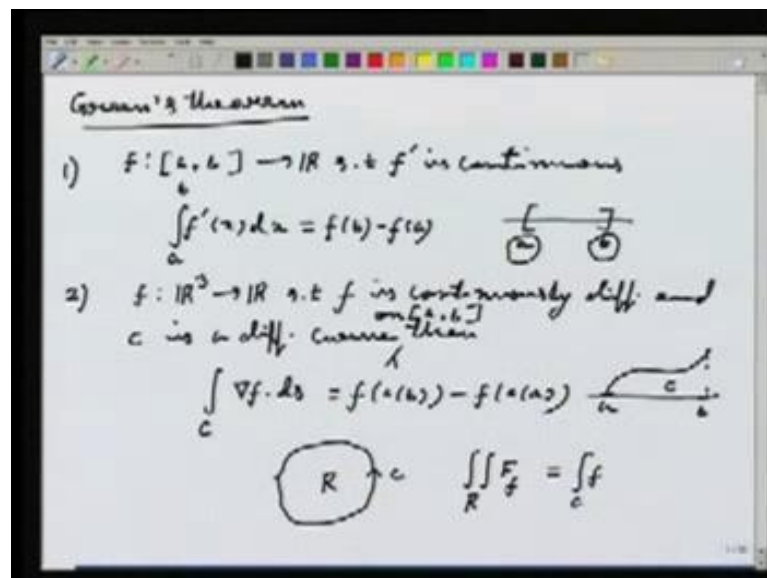 Green's theorem
1) f : [a, b] → IR s.t f' is continuous
∫_a^b f'(x) dx = f(b) - f(a)
[ ]
a b
2) f : IR³ → IR s.t f is continuously diff. and
on [a, b]
c is a diff. curve then
∫_C ∇f. ds = f(c(b)) - f(c(a))
c
a b
R c ∬_R F_f = ∫_c f